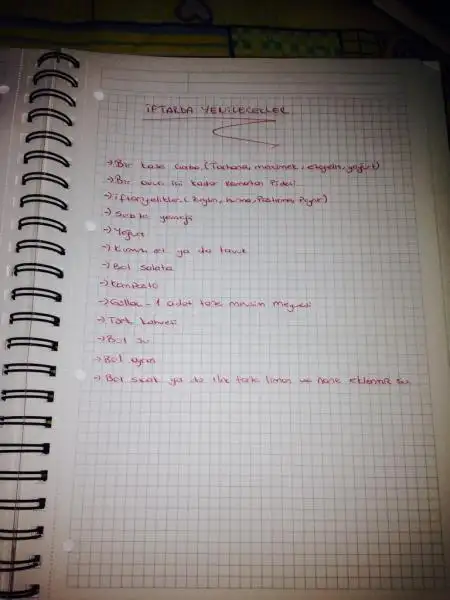 İFTARDA YENİLECEKLER
→ Bir kase çorba (Tarhana, mercimek, ezogelin, yoğurt)
→ Bir avuç içi kadar Ramazan Pidesi
→ iftariyelikler (Zeytin, hurma, Pastırma, Peynir)
→ Sebze yemeği
→ Yoğurt
→ Kırmızı et ya da tavuk
→ Bol salata
→ Komposto
→ Güllaç - 1 adet taze mevsim meyvesi
→ Türk kahvesi
→ Bol su
→ Bol ayran
→ Bol sıcak ya da ılık taze limon ve nane eklenmiş su